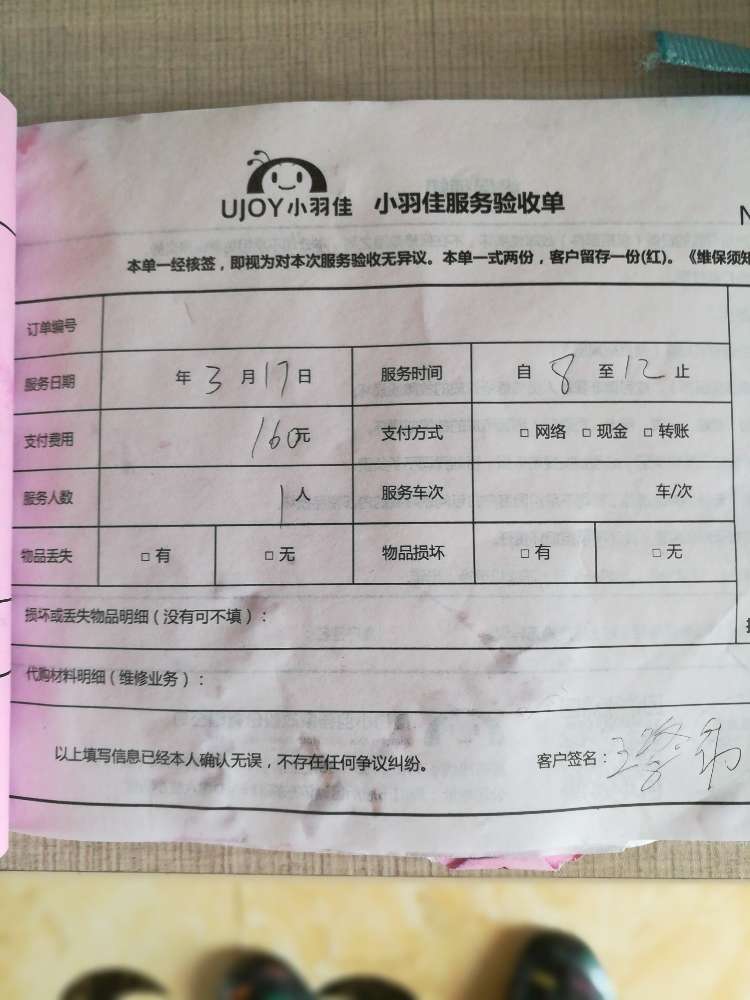 UJOY小羽佳 小羽佳服务验收单
N
本单一经核签，即视为对本次服务验收无异议。本单一式两份，客户留存一份(红)。《维保须知
订单编号
服务日期 年 3 月 17 日 服务时间 自 8 至 12 止
支付费用 160元 支付方式 □ 网络 □ 现金 □ 转账
服务人数 1 人 服务车次 车/次
物品丢失 □ 有 □ 无 物品损坏 □ 有 □ 无
损坏或丢失物品明细（没有可不填）：
代购材料明细（维修业务）：
以上填写信息已经本人确认无误，不存在任何争议纠纷。 客户签名：